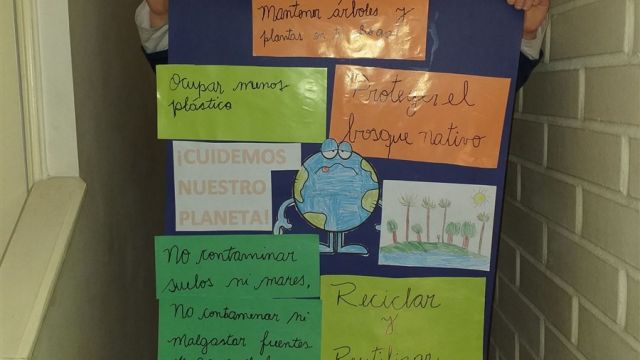 Mantener árboles y
plantas en tu hogar
Ocupar menos
plástico
Proteger el
bosque nativo
¡CUIDEMOS
NUESTRO
PLANETA!
No contaminar
suelos ni mares,
No contaminar ni
malgastar fuentes
Reciclar
y
Reutilizar